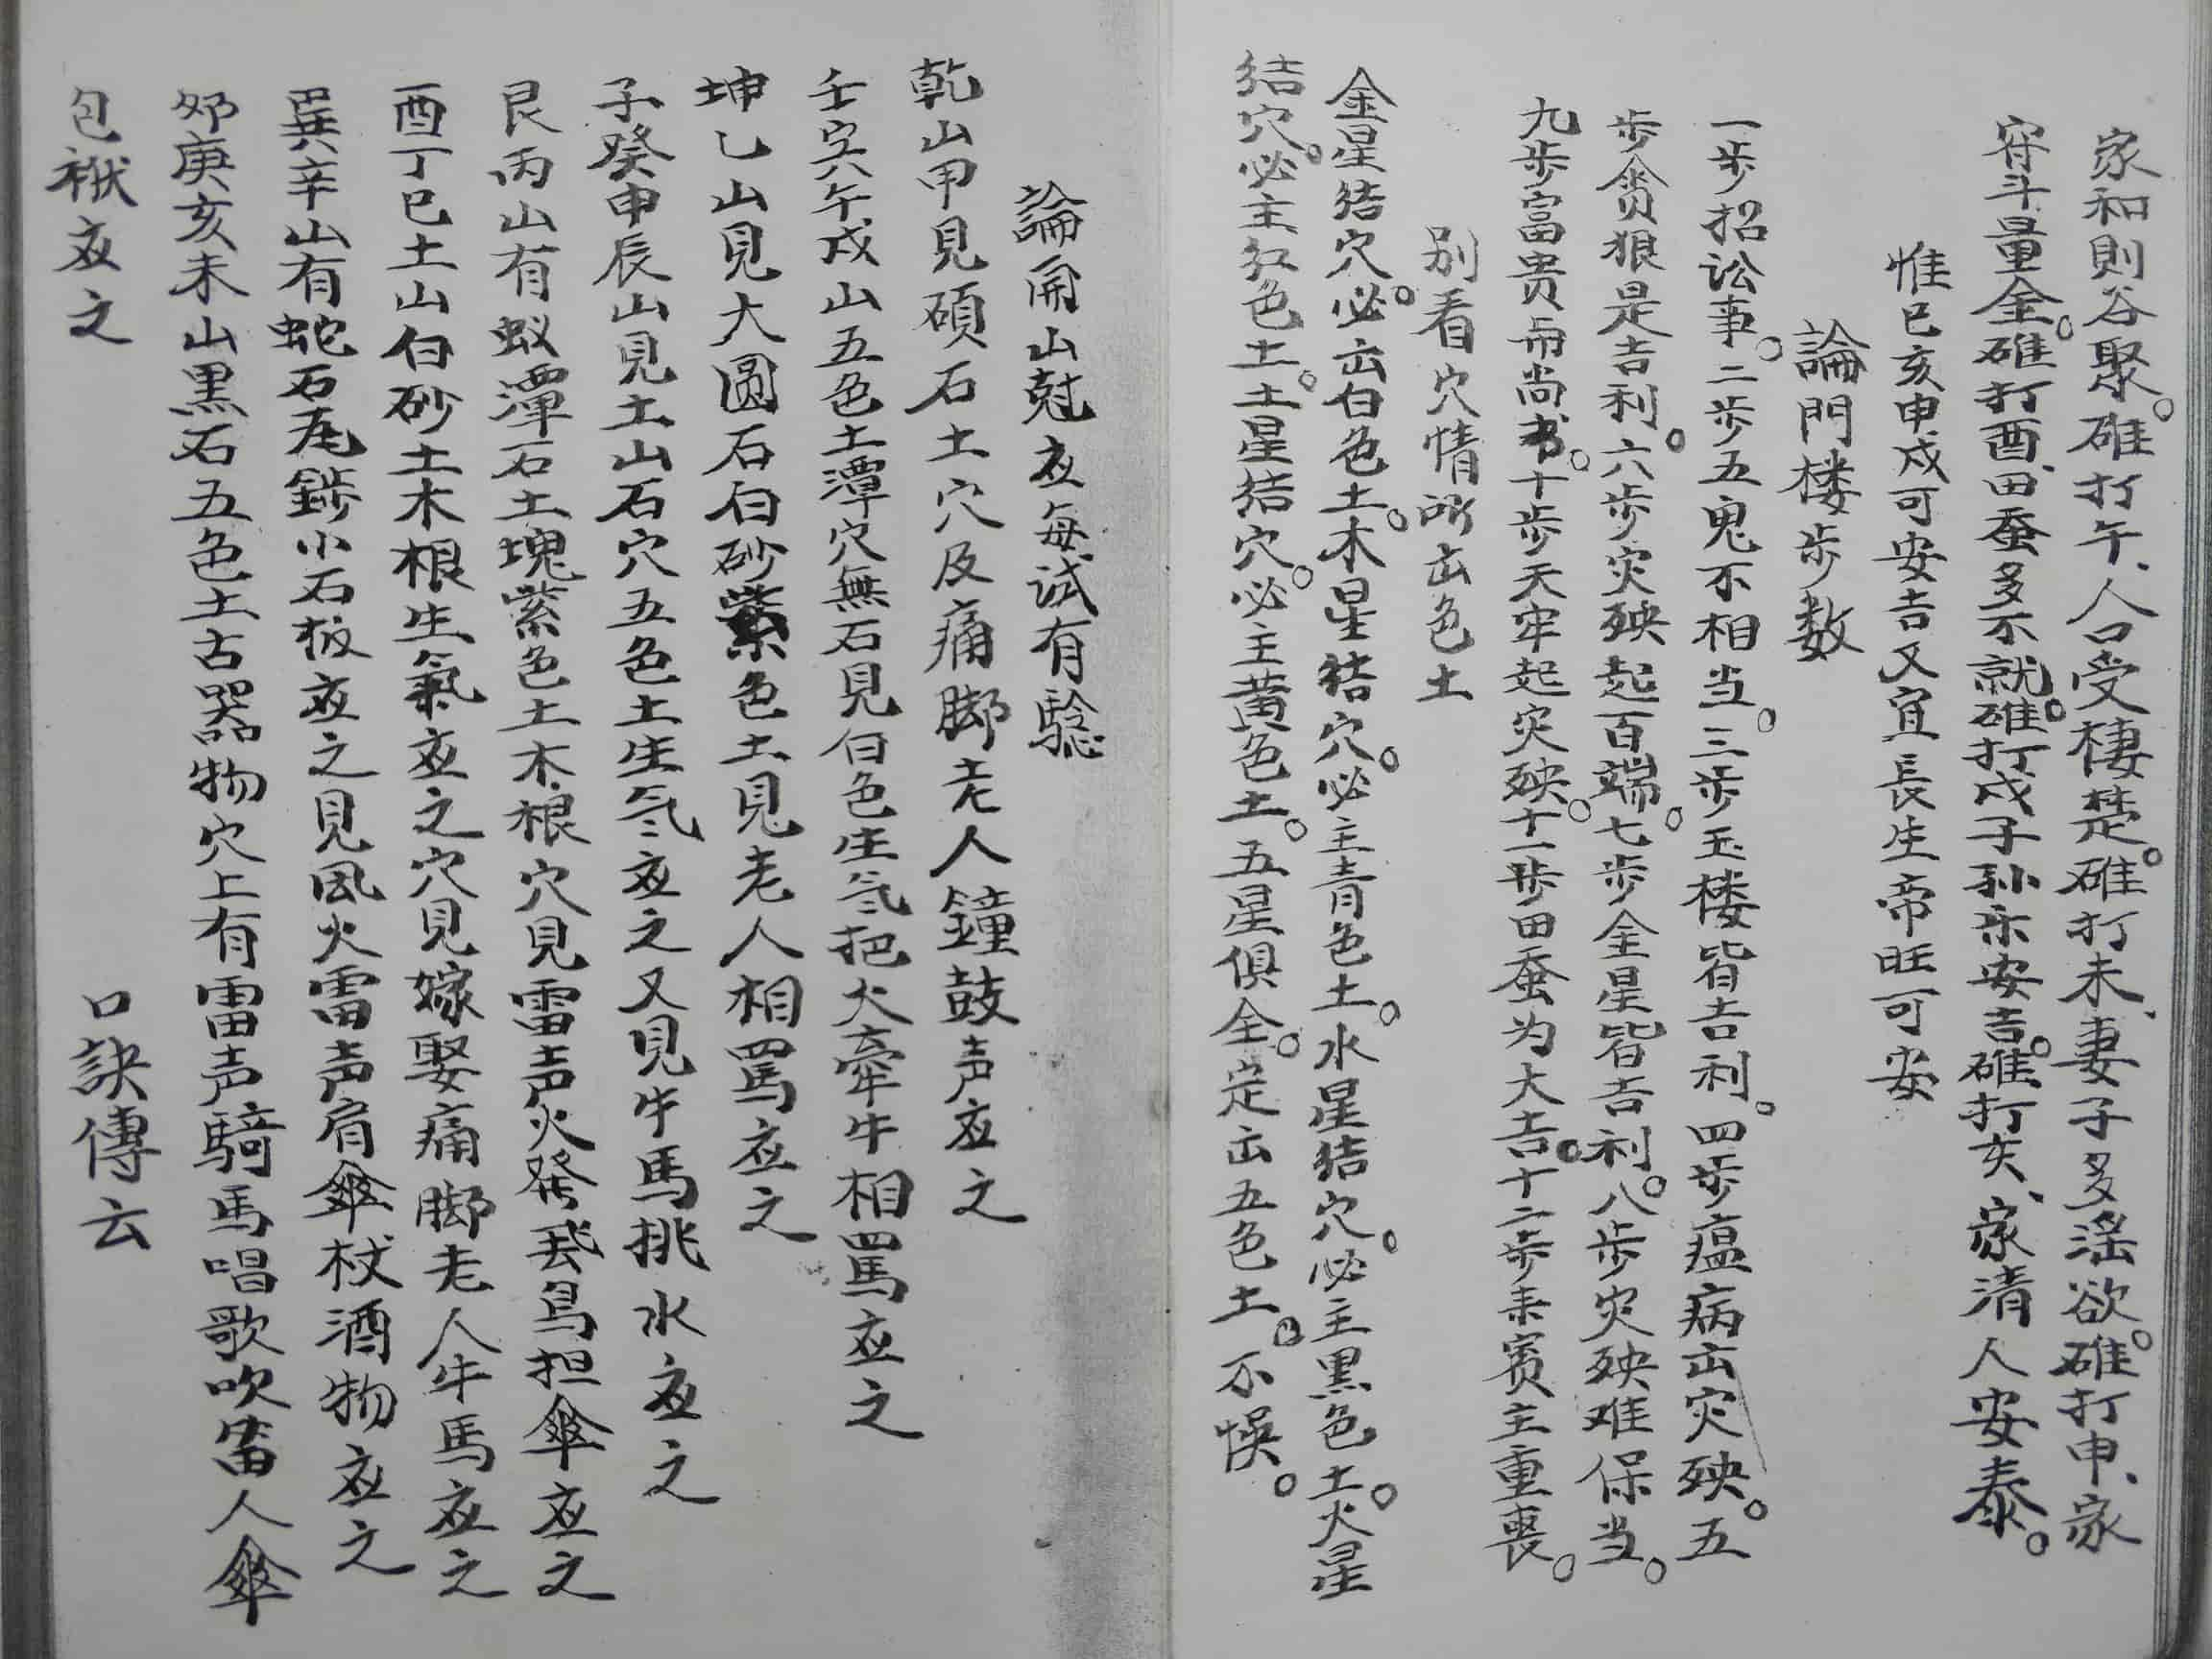 家和則谷聚。碓打午、人口受棲楚。碓打未、妻子多淫欲。碓打申、家
容斗量金。碓打酉、田蚕多不就。碓打戍子孙乐安吉。碓打亥、家清人安泰。
惟巳亥申戍可安吉又宜長生帝旺可安
論門楼步数
一步招讼事。二步五鬼不相当。三步玉楼皆吉利。四步瘟病出灾殃。五
步贪狼是吉利。六步灾殃起百端。七步金星皆吉利。八步灾殃难保当。
九步富贵而尚书。十步天牢起灾殃。十一步田蚕为大吉。十二步来賓主重喪。
别看穴情所出色土
金星结穴。必出白色土。木星结穴。必主青色土。水星结穴。必主黑色土。火星
结穴。必主红色土。土星结穴。必主黄色土。五星俱全。定出五色土。不悞。
論開山尅应每试有驗
乾山甲見碩石土穴及痛脚老人鐘鼓声应之
壬寅午戍山五色土潭穴無石見白色生气把犬牽牛相罵应之
坤乙山見大圆石白砂紫色土見老人相罵应之
子癸申辰山見土山石穴五色土生气应之又見牛馬挑水应之
艮丙山有蚁潭石土塊紫色土木根穴見雷声火發飛鳥担傘应之
酉丁巳土山白砂土木根生氣应之穴見嫁娶痛脚老人牛馬应之
巽辛山有蛇石尾小石板应之見风火雷声肩傘杖酒物应之
夘庚亥未山黑石五色土古器物穴上有雷声騎馬唱歌吹笛人傘
包袱应之 口訣傳云